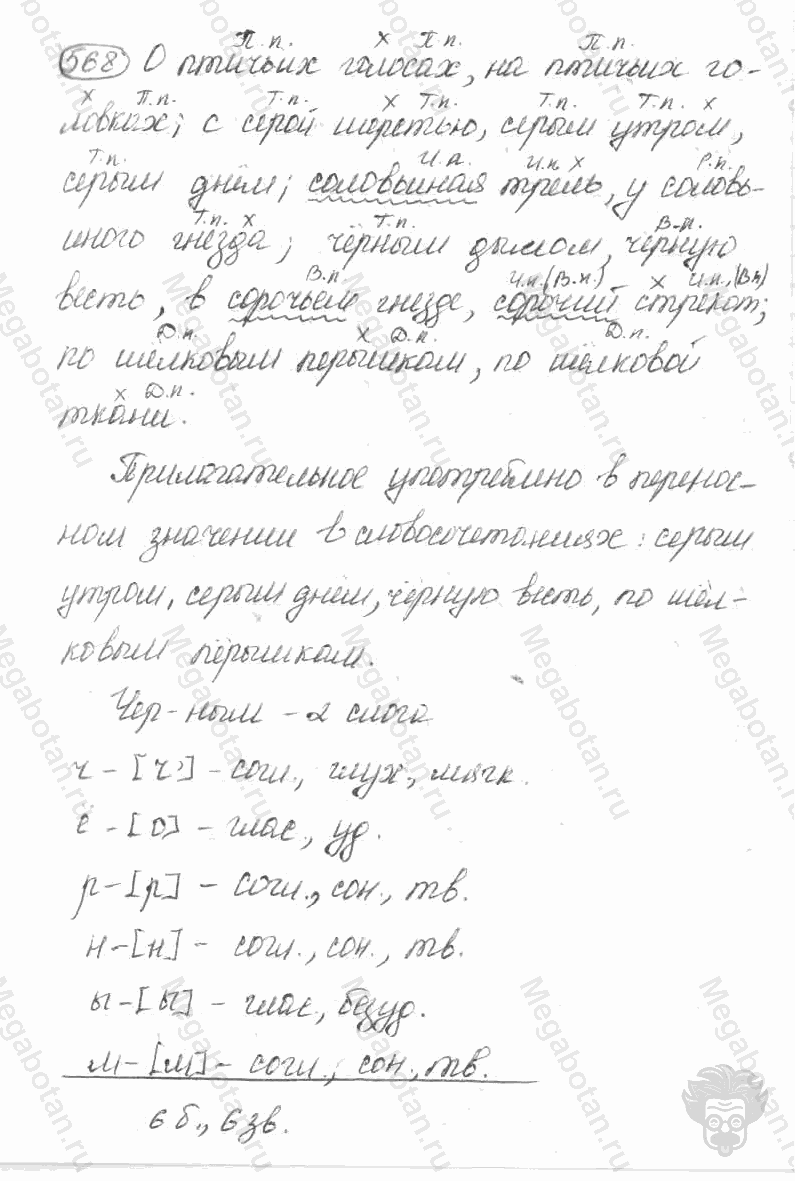 П.п. х П.п. П.п.
568 О птичьих голосах, на птичьих го-
х П.п. Т.п. х Т.п. Т.п. Т.п. х
ловках; с серой шерстью, серым утром,
Т.п. И.п. И.п х Р.п.
серым днём; соловьиная трель, у соловь-
Т.п. х Т.п. В.п.
иного гнезда; чёрным дымом, чёрную
В.п И.п.(В.п.) х И.п.,(Вп)
весть, в сорочьем гнезде, сорочий стрекот;
Д.п. х Д.п. Д.п.
по шёлковым пёрышкам, по шёлковой
х Д.п.
ткани.
Прилагательное употреблено в перенос-
ном значении в словосочетаниях: серым
утром, серым днём, чёрную весть, по шёл-
ковым пёрышкам.
Чёр-ным - 2 слога
ч - [ч'] - согл., глух., мягк.
ё - [о] - глас., уд.
р - [р] - согл., сон., тв.
н - [н] - согл., сон., тв.
ы - [ы] - глас., безуд.
м - [м] - согл., сон., тв.
6 б., 6 зв.
Megabotan.ru